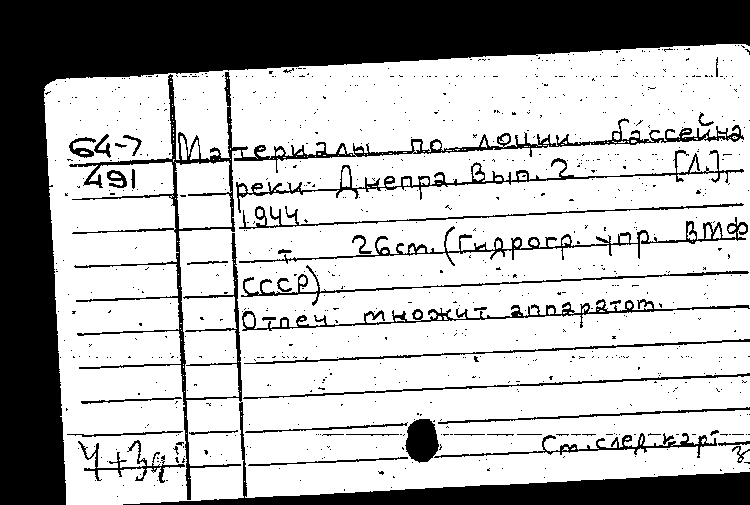 64-7 Материалы по лоции бассейна
491 реки Днепра. Вып. 2 [Л.],
1944.
т. 26 см. (Гидрогр. упр. ВМФ
СССР)
Отпеч. множит. аппаратом.
См. след. карт.